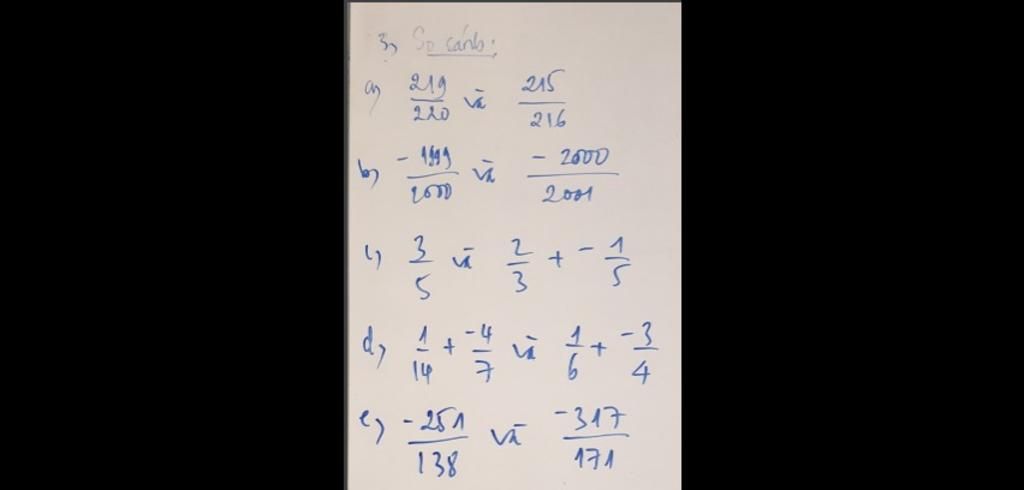 3, So sánh:
a) 219/220 và 215/216
b) -1999/2000 và -2000/2001
c) 3/5 và 2/3 + -1/5
d) 1/14 + -4/7 và 1/6 + -3/4
e) -251/138 và -317/171